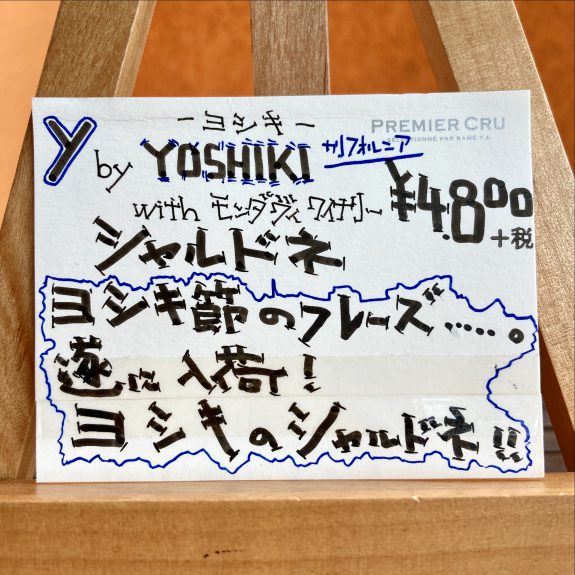 ーヨシキー
PREMIER CRU
SÉLECTIONNÉ PAR KAMEYA
Y by YOSHIKI カリフォルニア
with モンダヴィワイナリー ¥4.800
+税
シャルドネ
ヨシキ節のフレーズ‥‥‥。
遂に入荷!
ヨシキのシャルドネ!!